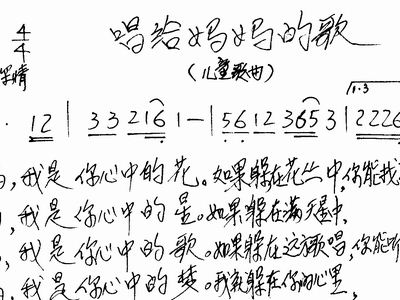 4
4
唱给妈妈的歌
深情
(儿童歌曲)
1.3
· 12 | 33 216 1 - | 56 12 365 3 | 2226
,我是你心中的花。如果躲在花丛中,你能找
,我是你心中的星。如果躲在满天星中,
,我是你心中的歌。如果躲在这歌唱,你能听
,我是你心中的梦。我就躲在你的心里,